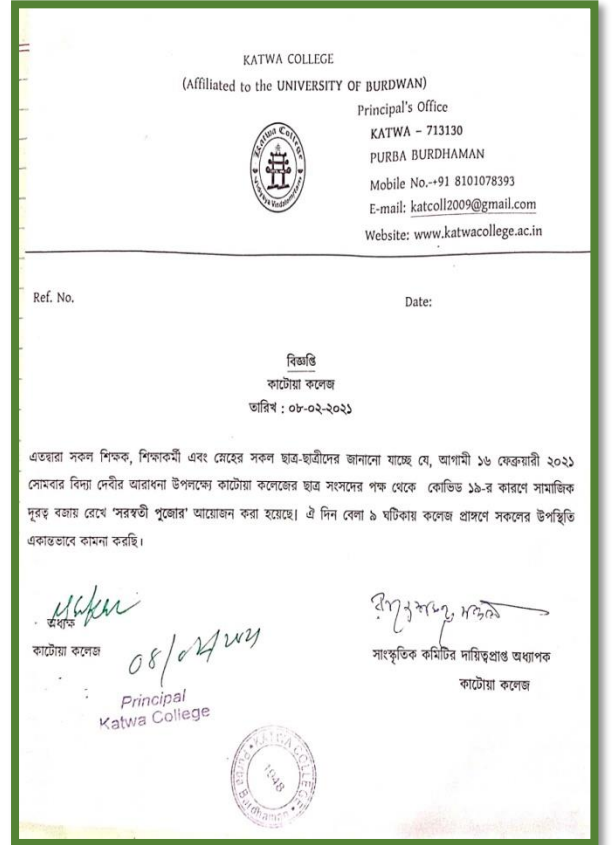 KATWA COLLEGE
(Affiliated to the UNIVERSITY OF BURDWAN)
Principal's Office
KATWA – 713130
PURBA BURDHAMAN
Mobile No.-+91 8101078393
E-mail: katcoll2009@gmail.com
Website: www.katwacollege.ac.in
Katwa College
Ref. No.
Date:
বিজ্ঞপ্তি
কাটোয়া কলেজ
তারিখ : ০৮-০২-২০২১
এতদ্বারা সকল শিক্ষক, শিক্ষাকর্মী এবং স্নেহের সকল ছাত্র-ছাত্রীদের জানানো যাচ্ছে যে, আগামী ১৬ ফেব্রুয়ারী ২০২১
সোমবার বিদ্যা দেবীর আরাধনা উপলক্ষ্যে কাটোয়া কলেজের ছাত্র সংসদের পক্ষ থেকে কোভিড ১৯-র কারণে সামাজিক
দূরত্ব বজায় রেখে 'সরস্বতী পুজোর' আয়োজন করা হয়েছে| ঐ দিন বেলা ৯ ঘটিকায় কলেজ প্রাঙ্গণে সকলের উপস্থিতি
একান্তভাবে কামনা করছি।
অধ্যক্ষ
কাটোয়া কলেজ
08/02/2021
Principal
Katwa College
সাংস্কৃতিক কমিটির দায়িত্বপ্রাপ্ত অধ্যাপক
কাটোয়া কলেজ
KATWA COLLEGE
Purba Burdhaman
1948